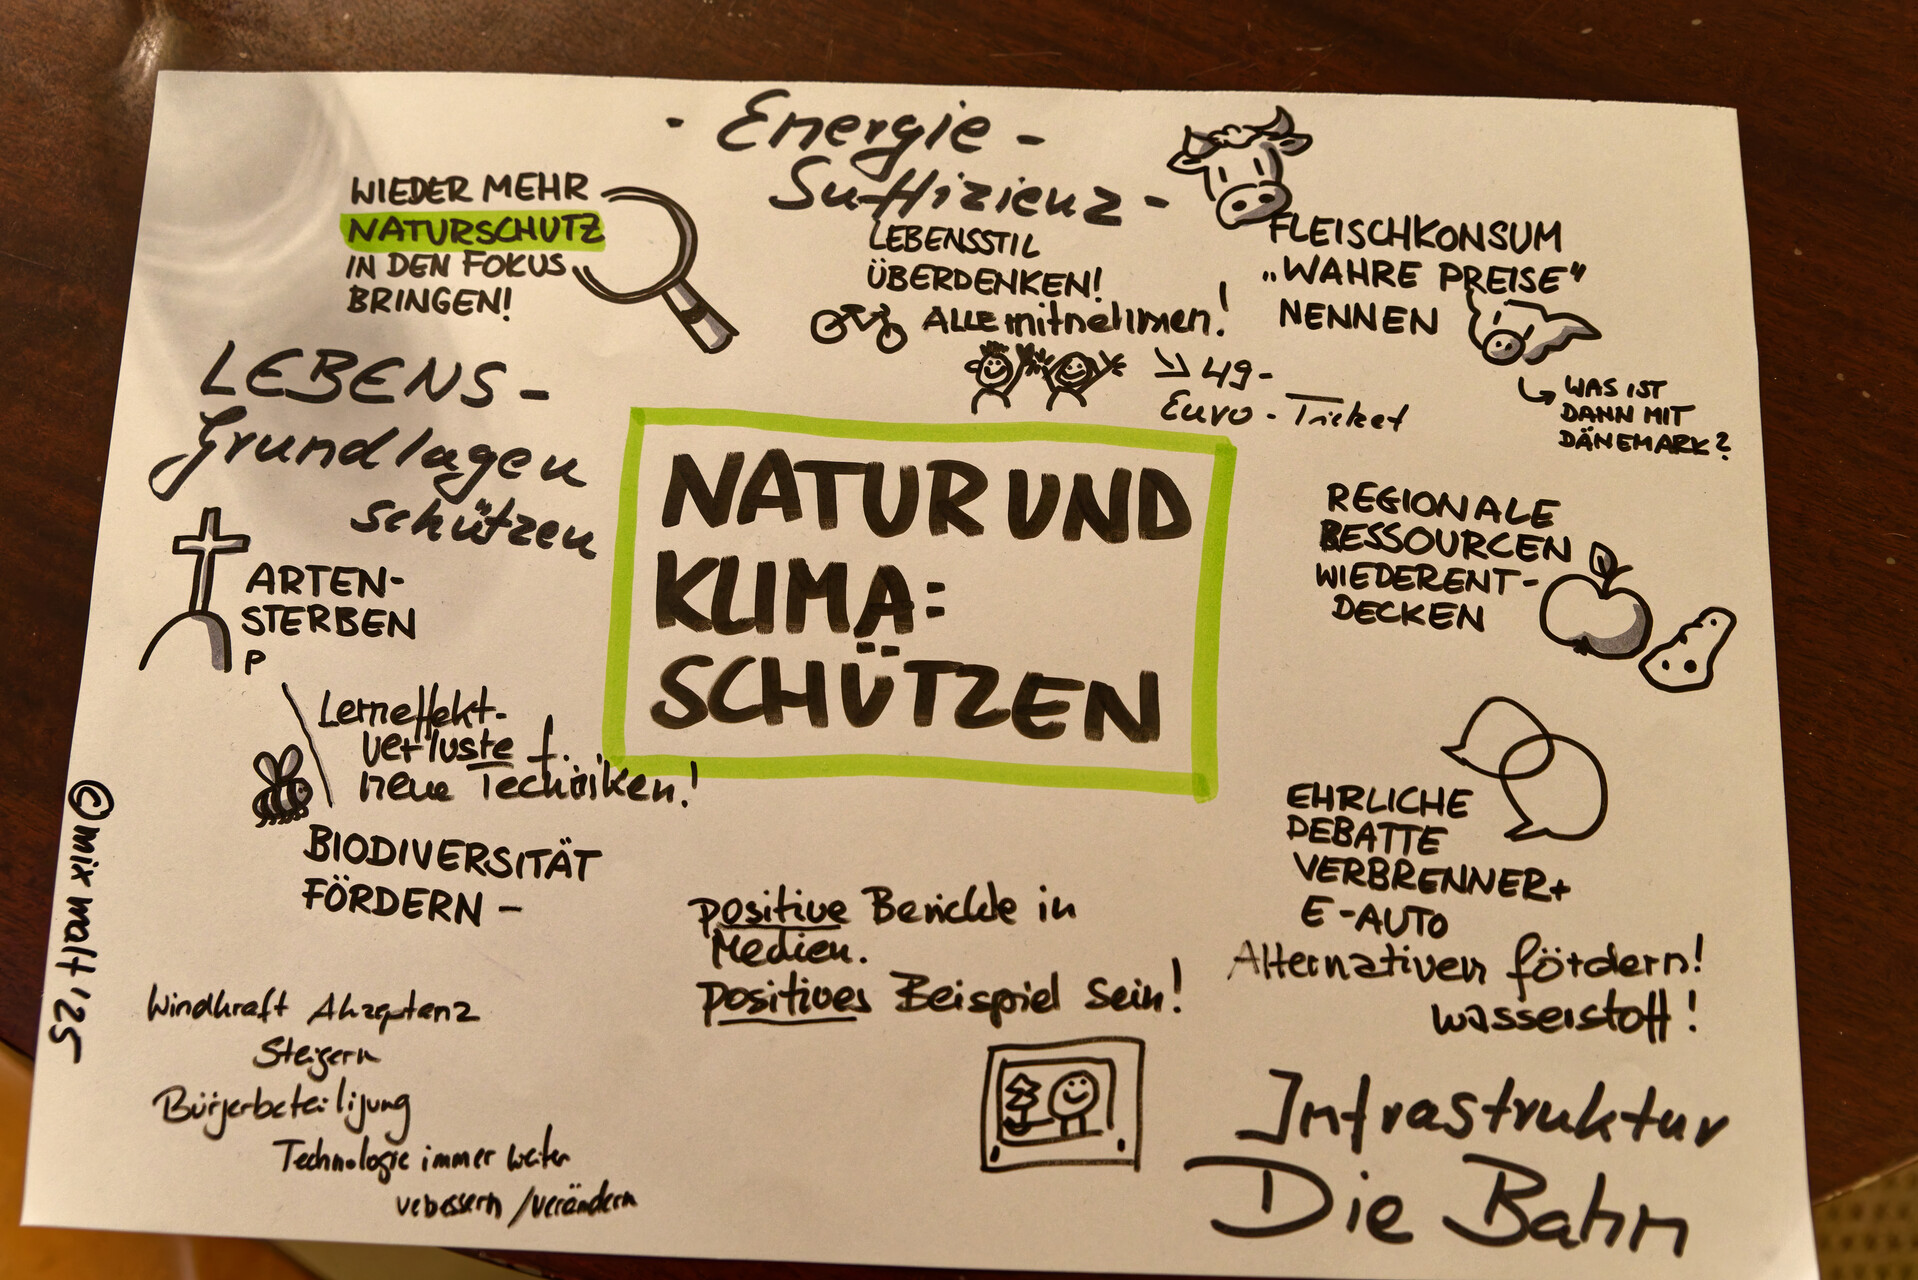 - Energie -
Suffizienz -
WIEDER MEHR
NATURSCHUTZ
IN DEN FOKUS
BRINGEN!
LEBENSSTIL
ÜBERDENKEN!
ALLE mitnehmen!
↘ 49-
Euro-Ticket
FLEISCHKONSUM
„WAHRE PREISE"
NENNEN
WAS IST
DANN MIT
DÄNEMARK?
LEBENS-
Grundlagen
schützen
NATUR UND
KLIMA:
SCHÜTZEN
REGIONALE
RESSOURCEN
WIEDERENT-
DECKEN
ARTEN-
STERBEN
P
Lerneffekt-
verluste f.
neue Techniken!
BIODIVERSITÄT
FÖRDERN -
EHRLICHE
DEBATTE
VERBRENNER+
E-AUTO
Alternativen fördern!
wasserstoff!
positive Berichte in
Medien.
positives Beispiel sein!
Windkraft Akzeptanz
Steigern
Bürgerbeteiligung
Technologie immer weiter
vebessern /verändern
Infrastruktur
Die Bahn
© mix malt '25